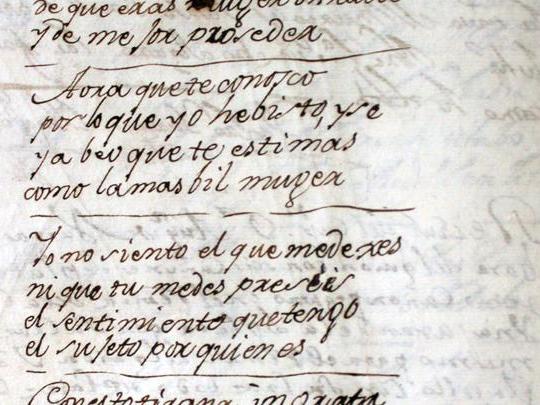 de que eras muger onrrada
y de mejor proseder
Aora que te conosco
por lo que yo he bisto, y se
ya beo que te estimas
como la mas bil muger
Yo no siento el que me dexes
ni que tu me despresies
el sentimiento que tengo
el sujeto por quien es